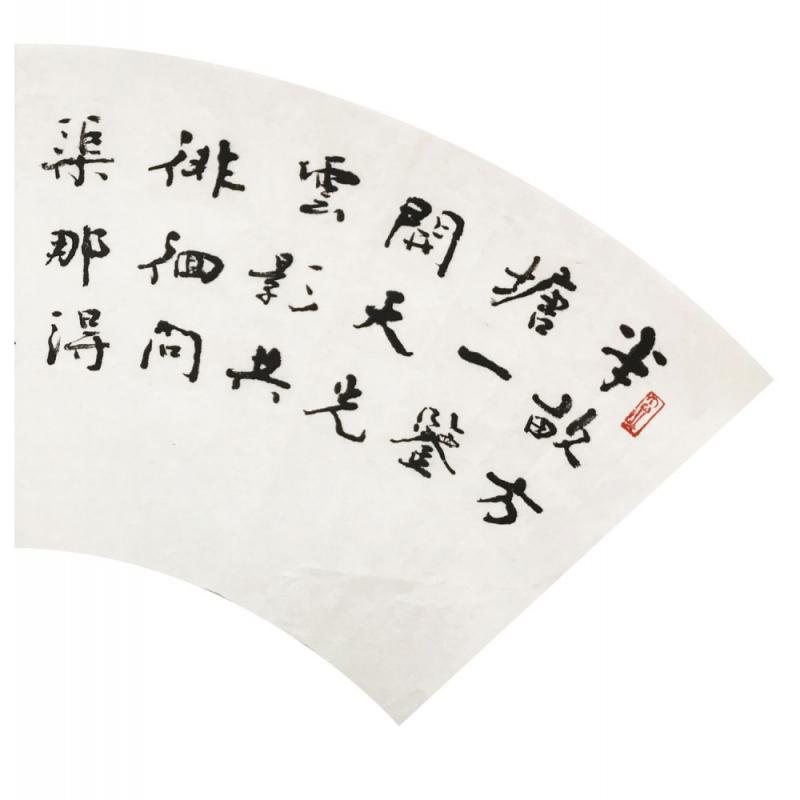 半畝方
塘一鑒
開天光
雲影共
徘徊問
渠那得